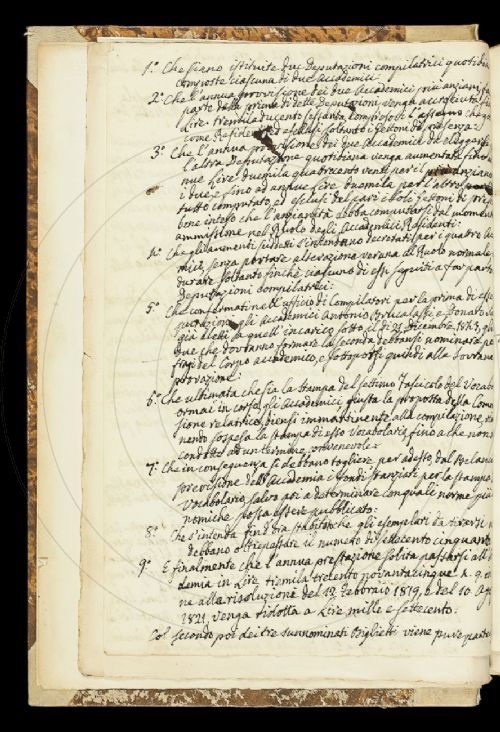 1.° Che siano istituite due Deputazioni compilatrici quotidia
composte ciascuna di due Accademici:
2.° Che l'annua provisione dei due Accademici più anziani, fa
parte della prima di dette Deputazioni venga accresciuta fino
Lire tremila ducento sessanta, compresosi l'assegno che go
come Residenti, ed esclusi soltanto i gettoni di presenza:
3.° Che l'annua provisione dei due Accademici da eleggersi
l'altra Deputazione quotidiana venga aumentata fino
nue Lire duemila quattrocento venti per il più anziano
i due, e fino ad annue Lire duemila per l'altro
tutto computato, ed esclusi del pari i soli gettoni di pres
bene inteso che l'anzianità debba computarsi dal momento
ammissione nel Ruolo degli Accademici Residenti:
4.° Che gli aumenti suddetti s'intendano decretati per quattro Ac
mici, senza portare alterazione veruna al Ruolo normale
durare soltanto finchè ciascuno di essi seguiti a far parte
Deputazioni compilatrici:
5.° Che confermati nell'uffizio di Compilatori per la prima di esse
putazioni gli Accademici Antonio Brucalassi, e Donato Sa
già eletti a quell'incarico sotto il dì 21. Dicembre 1847, qu
due che dovranno formare la seconda debbansi nominare pe
fragi del Corpo accademico, e sottoporsi quindi alla Sovrana
provazione:
6.° Che ultimata che sia la stampa del settimo Fascicolo del Vocab
ormai in corso, gli Accademici giusta la proposta della Com
sione relatrice, pensi immantinente alla compilazione, ri
nendo sospesa la stampa di esso Vocabolario fino a che non s
condotta ad un termine convenevole:
7.° Che in conseguenza si debbano togliere per adesso dal Bilanc
previsione dell'Accademia i fondi stanziati per la stampa
Vocabolario, salvo poi a determinare con quale norme più
nomiche possa essere pubblicato:
8.° Che s'intenda fin d'ora stabilito che gli esemplari da tirarsi n
debbano oltrepassare il numero di settecento cinquanta
9.° E finalmente che l'annua prestazione solita passarsi all'
demia in Lire tremila trecento novantacinque
ne alle risoluzione del 12 Febbraio 1819, e del 10 Ag
1821, venga ridotta a Lire mille e settecento:
Col secondo poi dei tre sunnominati Biglietti viene pure parte